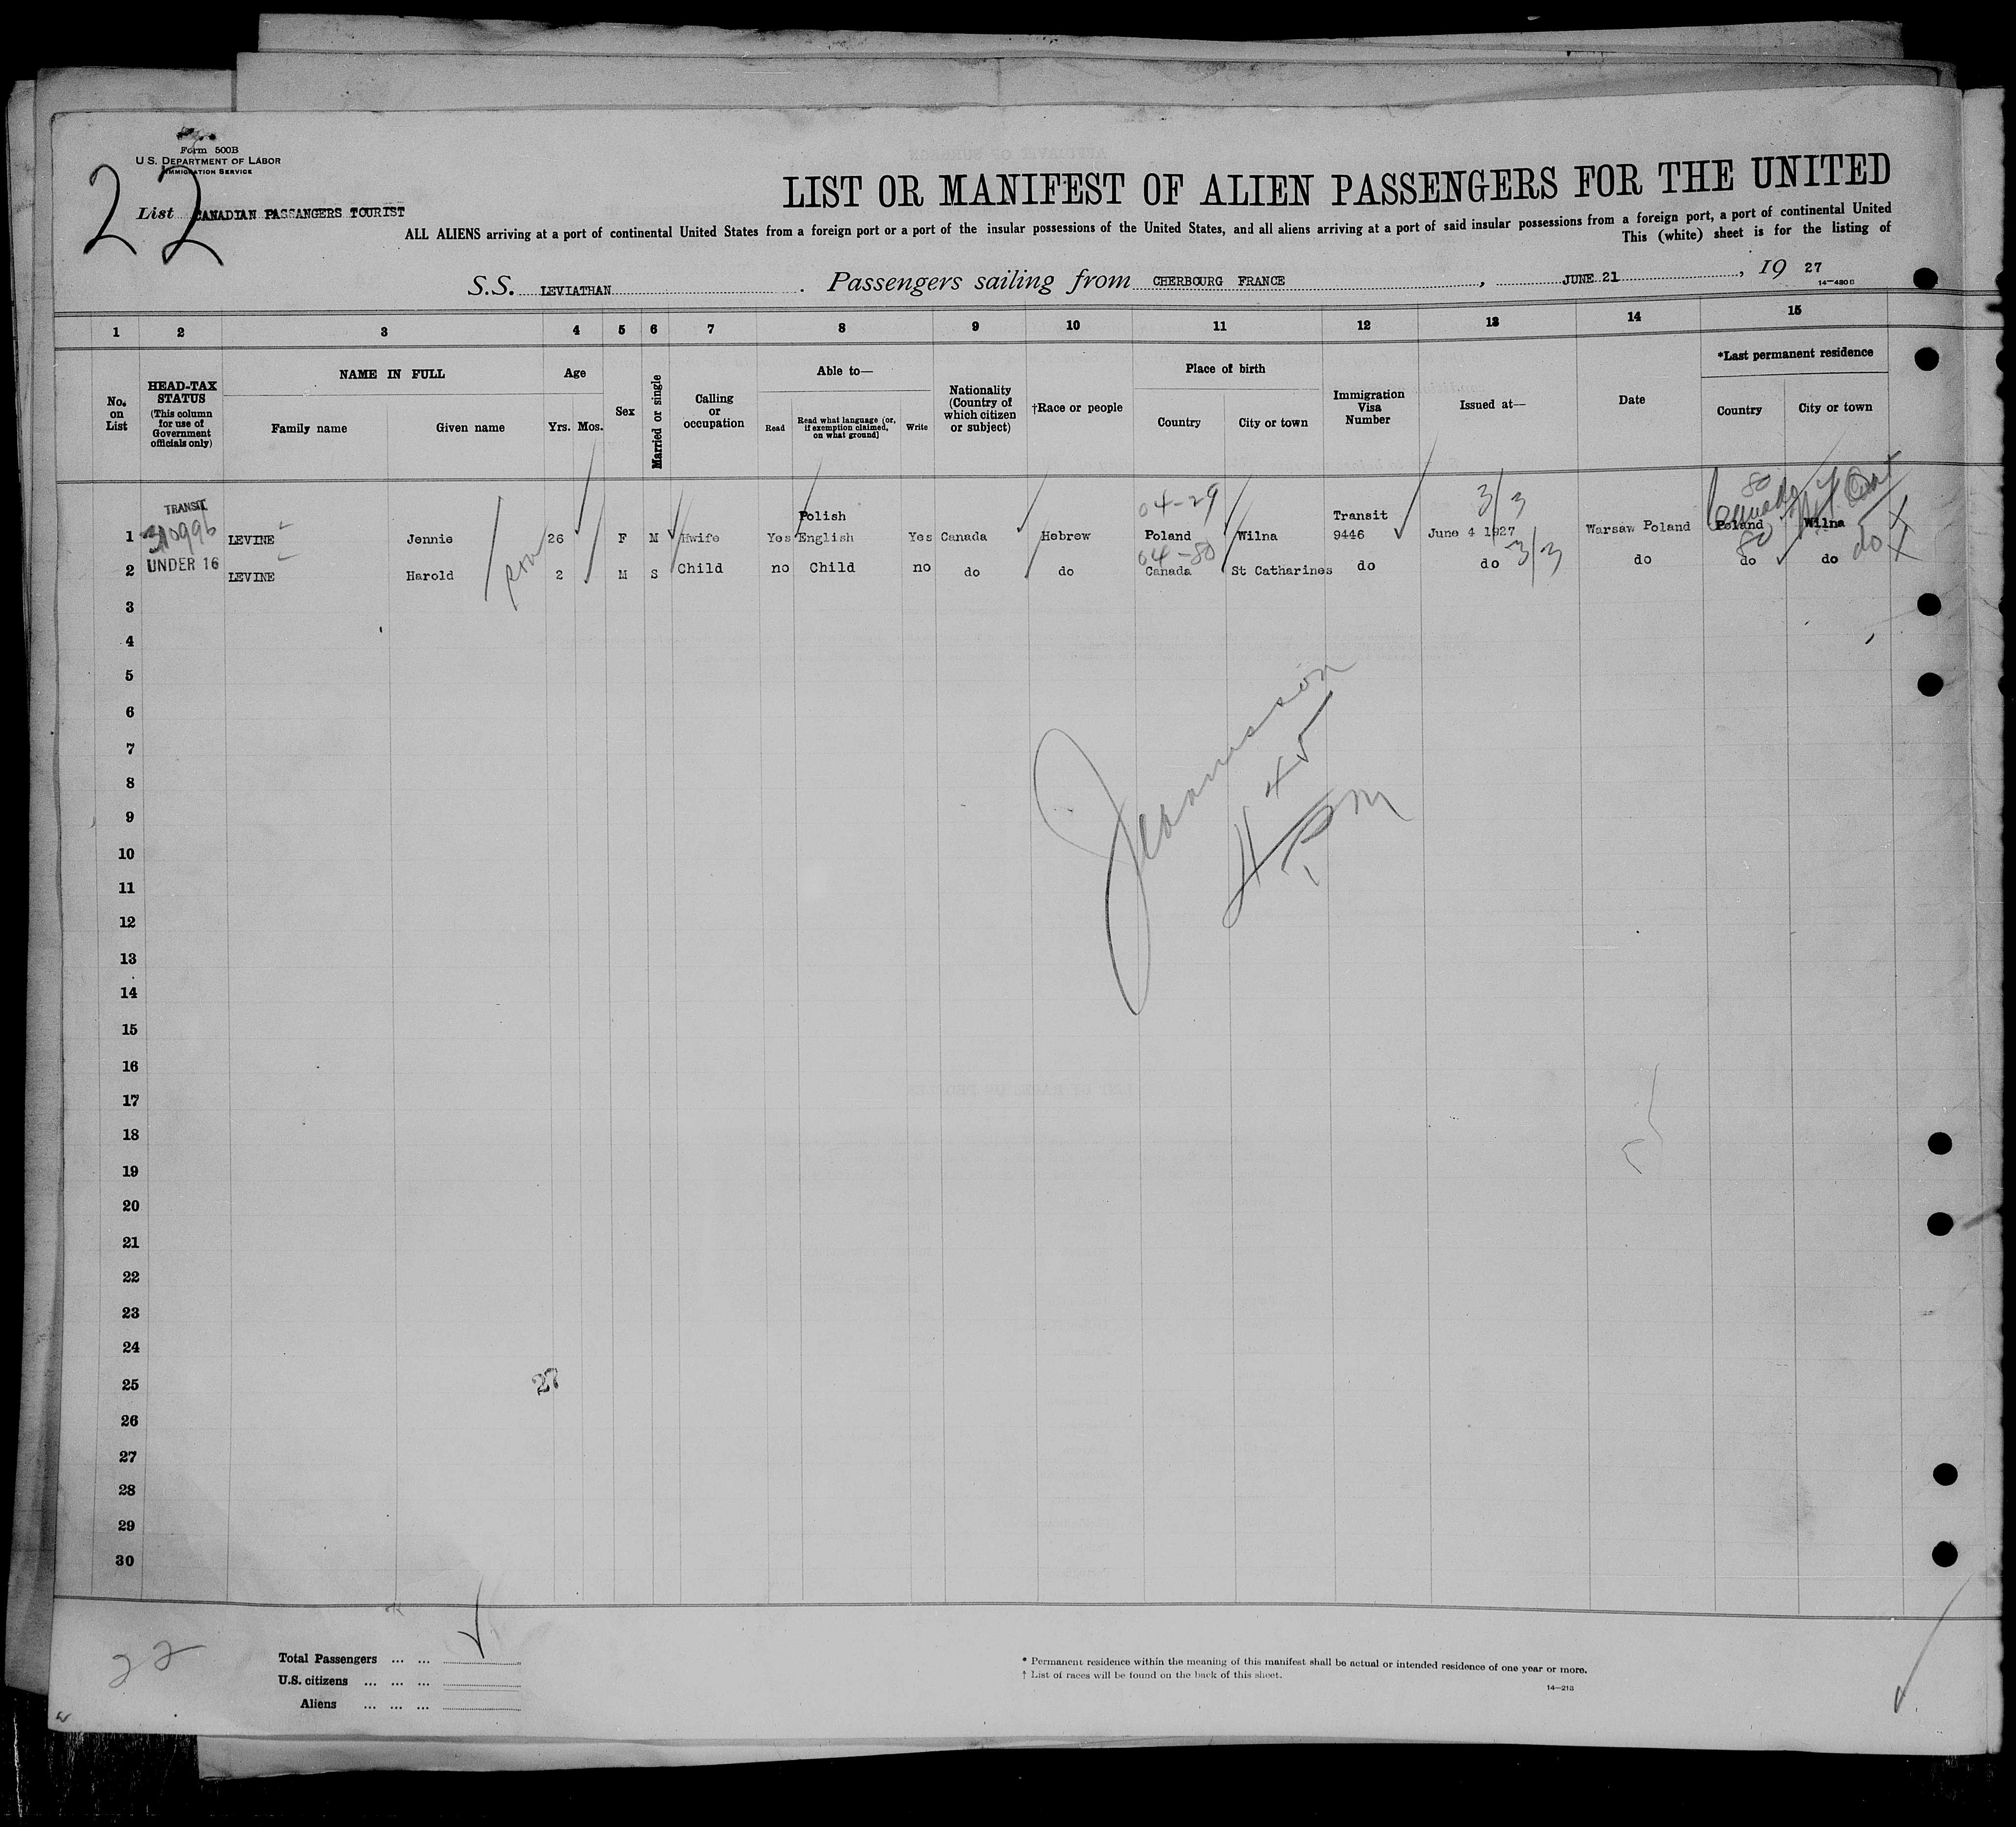 Form 500B
U.S. DEPARTMENT OF LABOR
IMMIGRATION SERVICE
22
List CANADIAN PASSANGERS TOURIST
LIST OR MANIFEST OF ALIEN PASSENGERS FOR THE UNITED
ALL ALIENS arriving at a port of continental United States from a foreign port or a port of the insular possessions of the United States, and all aliens arriving at a port of said insular possessions from a foreign port, a port of continental United
This (white) sheet is for the listing of
S.S. LEVIATHAN. Passengers sailing from CHERBOURG FRANCE, JUNE 21, 19 27
14—430B
1 2 3 4 5 6 7 8 9 10 11 12 13 14 15
No. on List
HEAD-TAX STATUS (This column for use of Government officials only)
NAME IN FULL
Family name Given name
Age
Yrs. Mos.
Sex
Married or single
Calling or occupation
Able to—
Read Read what language [or, if exemption claimed, on what ground] Write
Nationality (Country of which citizen or subject)
†Race or people
Place of birth
Country City or town
Immigration Visa Number
Issued at—
Date
*Last permanent residence
Country City or town
TRANSIT Polish 04-29 Transit 3/3 80 Canada
1 310996 LEVINE Jennie 26 F M Hwife Yes English Yes Canada Hebrew Poland Wilna 9446 June 4 1927 Warsaw Poland Poland Wilna
04-80 3/3 80 do
2 UNDER 16 LEVINE Harold 2 M S Child no Child no do do Canada St Catharines do do do do do
3
4
5
6
7
8
9
10
11
12
13
14
15
16
17
18
19
20
21
22
23
24
25
26
27
28
29
30
27
22
Total Passengers ... ...
U.S. citizens ... ... ...
Aliens ... ... ...
* Permanent residence within the meaning of this manifest shall be actual or intended residence of one year or more.
† List of races will be found on the back of this sheet.
14—213